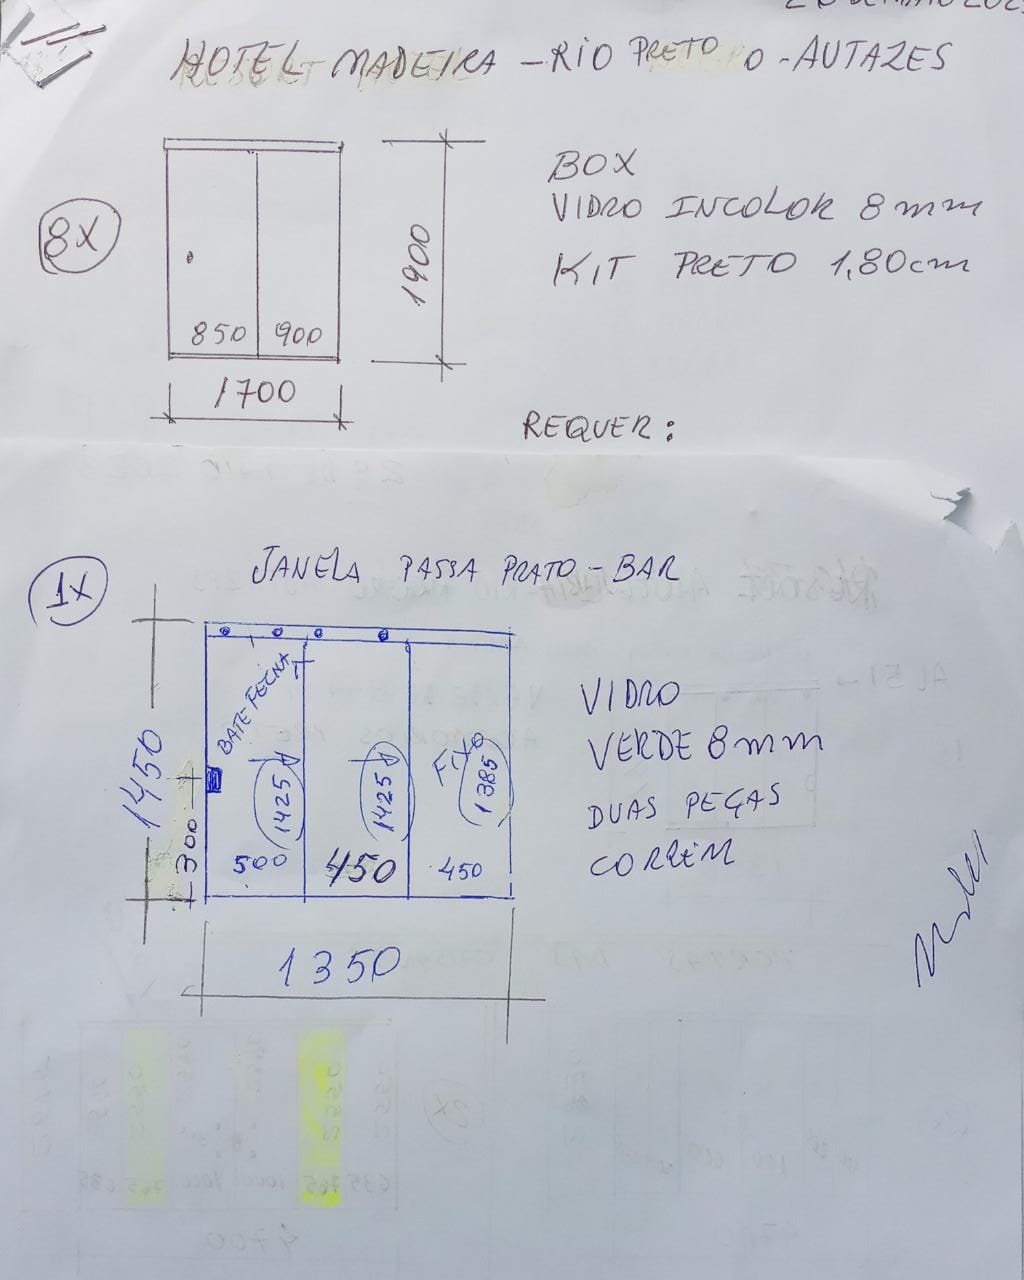 HOTEL MADEIRA - RIO PRETO - AUTAZES
8X
BOX
VIDRO INCOLOR 8mm
KIT PRETO 1,80cm
1900
850 900
1700
REQUER:
1X
JANELA PASSA PRATO - BAR
1450
300
BATE FECHA
1425
1425
FIXO
1385
500 450 450
1350
VIDRO
VERDE 8mm
DUAS PEÇAS
CORREM